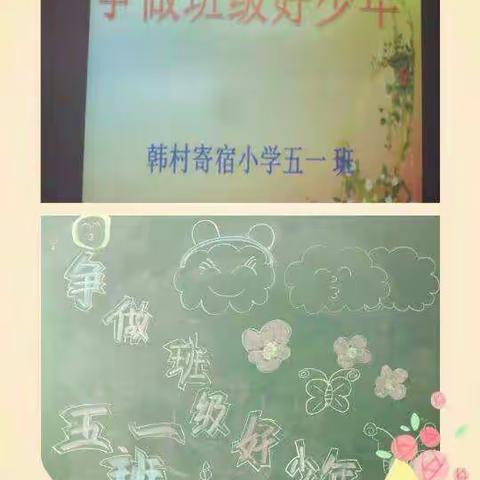 争做班级好少年
韩村寄宿小学五一班
争做班级好少年
五一班